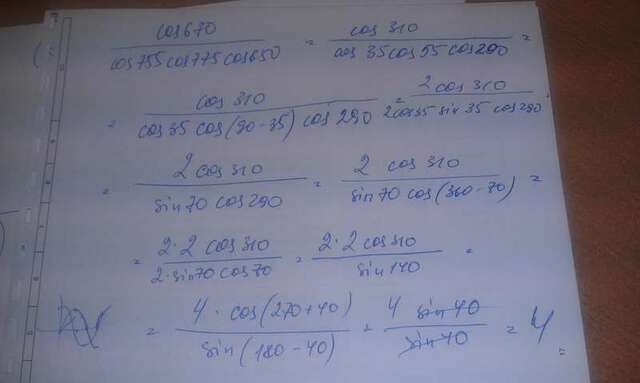 cos670 / cos755 cos775 cos650 = cos 310 / cos 35 cos 55 cos290 =
= cos 310 / cos 35 cos (90-35) cos 290 = 2 cos310 / 2cos35 sin 35 cos290
= 2 cos310 / sin70 cos290 = 2 cos 310 / sin70 cos(360-70) =
= 2·2 cos310 / 2·sin70 cos70 = 2·2 cos310 / sin140 =
= 4 · cos(270+40) / sin(180-40) = 4 sin40 / sin40 = 4